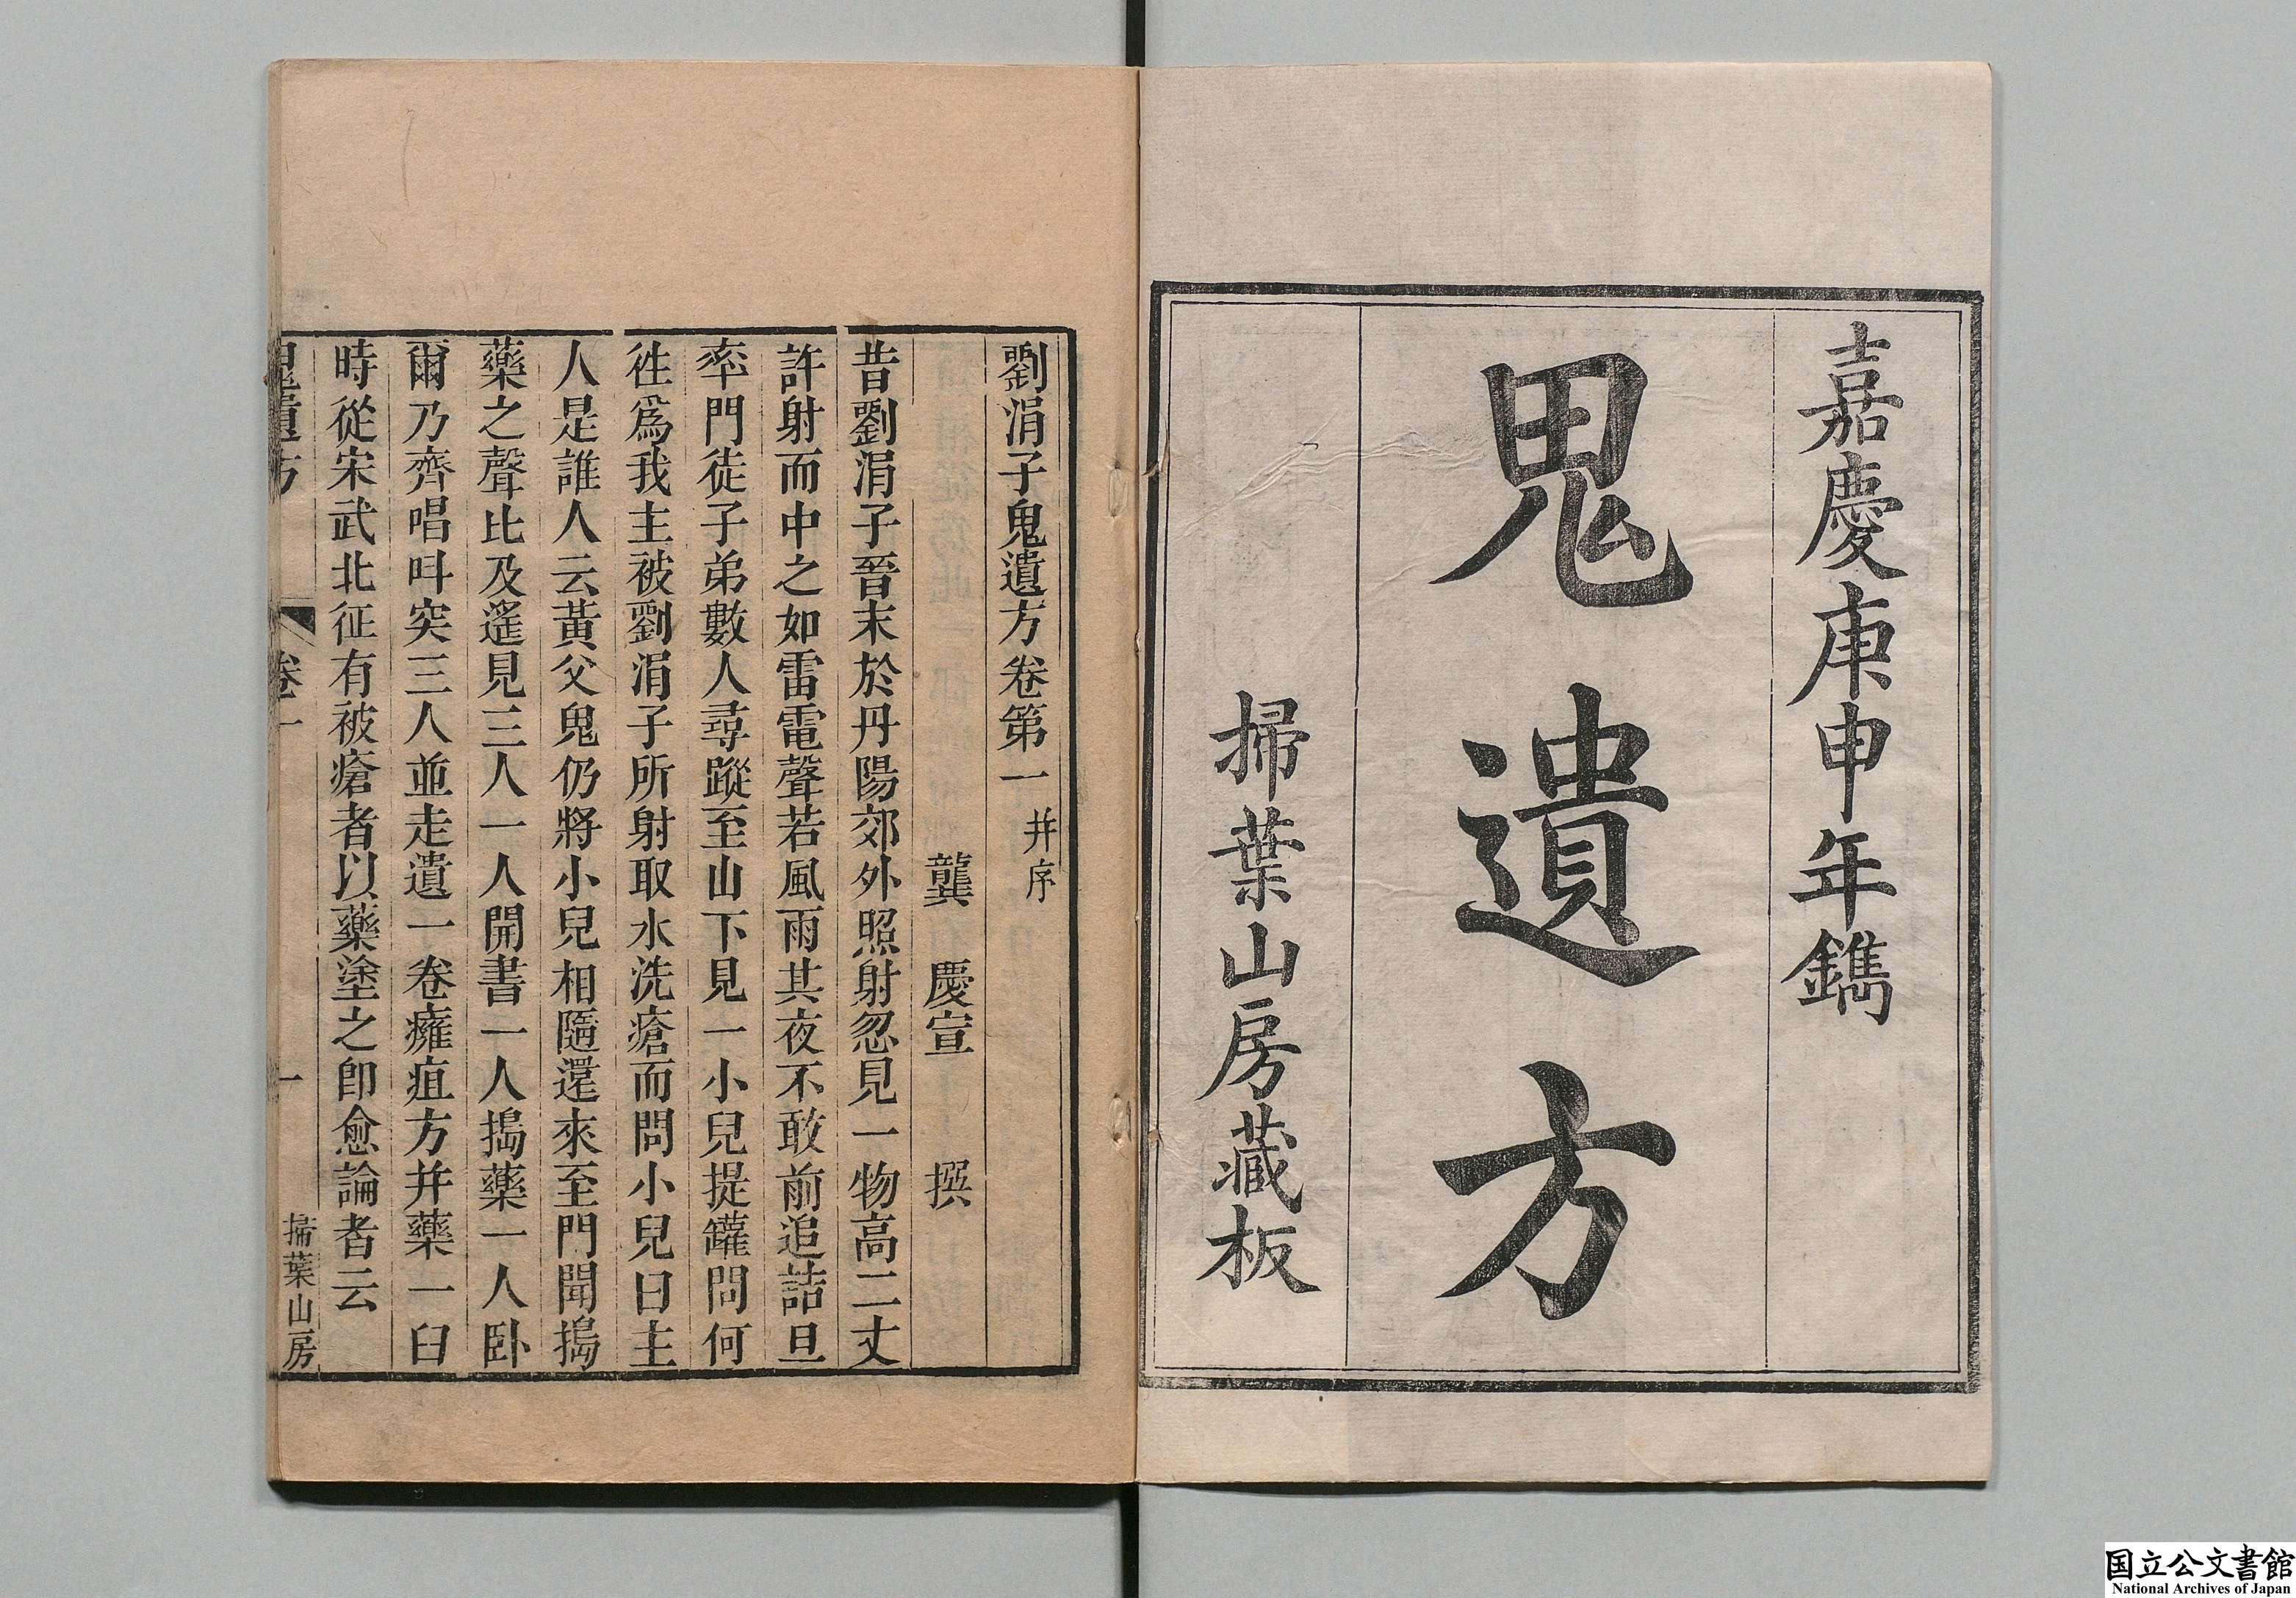 嘉慶庚申年鐫
鬼遺方
掃葉山房藏板
劉涓子鬼遺方卷第一 并序
龔慶宣撰
昔劉涓子晉末於丹陽郊外照射忽見一物高二丈
許射而中之如雷電聲若風雨其夜不敢前追詰旦
率門徒子弟數人尋蹤至山下見一小兒提罐問何
徃爲我主被劉涓子所射取水洗瘡而問小兒曰主
人是誰人云黃父鬼仍將小兒相隨還來至門聞搗
藥之聲比及遙見三人一人開書一人搗藥一人卧
爾乃齊唱叫突三人並走遺一卷癰疽方并藥一臼
時從宋武北征有被瘡者以藥塗之卽愈論者云
鬼遺方 卷一 一 掃葉山房
国立公文書館
National Archives of Japan